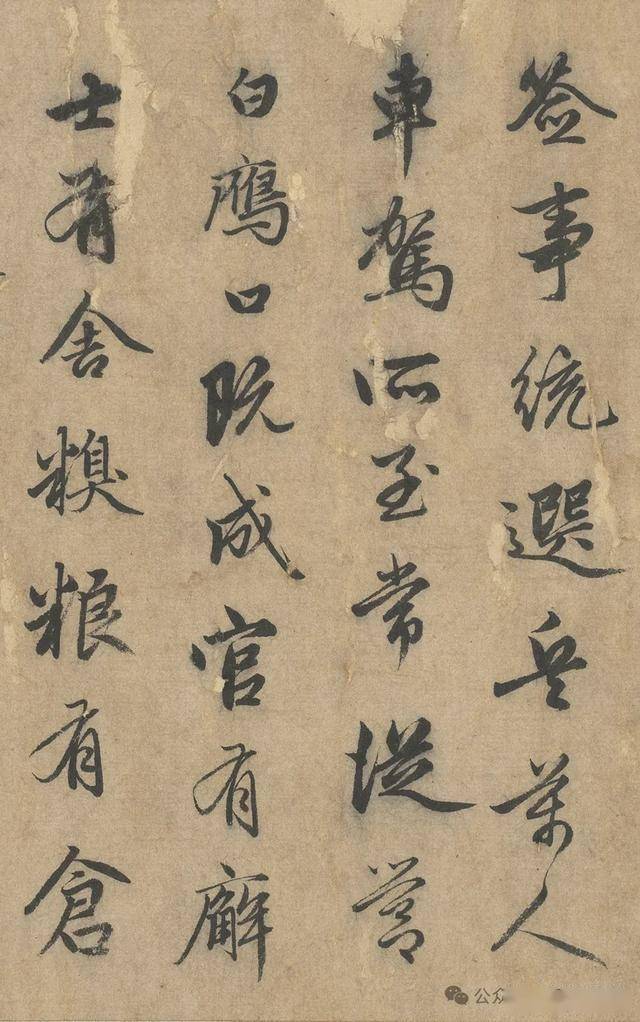 签事統選兵萬人
車駕所至常從營
白鷹口既成官有廨
士有舍糗粮有倉
公众